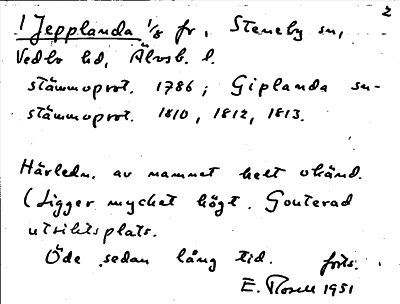 2
! Jepplanda 1/8 fr, Steneby sn,
Vedbo hd, Älvsb. l.
stämmoprot. 1786; Giplanda sn-
stämmoprot. 1810, 1812, 1813.
Härledn. av namnet helt okänd.
(Ligger mycket högt. Gouterad
utsiktsplats.
Öde sedan lång tid. forts.
E. Rosell 1951